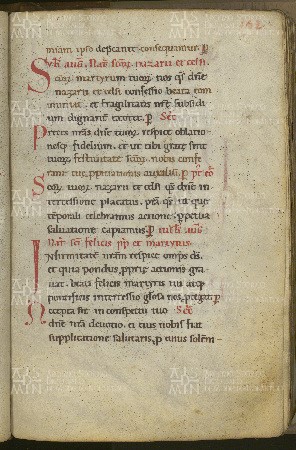 miam ipso depcante consequamur. p
V kł aug. Nat scoꝝ nazarii et celsi
Scoꝝ martyrum tuoꝝ nos qs dñe
nazarii et celsi confessio beata com
muniat. et fragilitatis nrę subsidi
um dignanter exoret. p Sec
Preces nrãs dñe tuoꝝ respice oblatio
nesq; fidelium. et ut tibi gratę sint
tuoꝝ festiuitate scoꝝ. nobis confe
rant tuę auxiliũ. p
Scoꝝ tuoꝝ nazarii et celsi qs dñe in
tercessione placatus. pręsta qs ut quę
temporali celebramus actione. ppetua
saluatione capiamus. p kł aug.
Nat sci felicis pp et martyris
Infirmitatẽ nrãm respice omps ds.
et quia pondus pprię actionis gra
uat. beati felicis martyris tui atq;
pontificis intercessio głosa nos ptegat. p
Accepta sit in conspectu tuo Sec
dñe nrã deuotio. et eius nobis fiat
supplicatione salutaris. p cuius solem